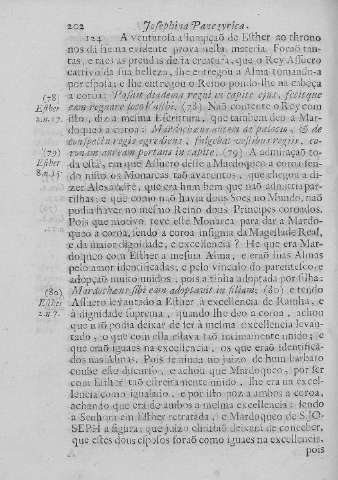 202 Josephina Panegyrica.
124 A venturosa assumpçaõ de Esther ao throno
nos dá hũa evidente prova nesta materia. Foraõ tan-
tas, e taes as prendas desta creatura, que o Rey Assuero
cattivo da sua belleza, lhe entregou a Alma tomando-a
por esposa; e lhe entregou o Reino pondo-lhe na cabeça
a coroa: Posuit diadema regni in capite ejus, fecitque
(78)
Esther
2.n.17.
eam regnare loco Vasthi. (78) Naõ contente o Rey com
isto, diz a mesma Escritura, que tambem deo a Mar-
doqueo a coroa: Mardochæus autem de palatio, & de
conspectu regis egrediens, fulgebat vestibus regiis, co-
(79)
Esther
8.n.15.
ronam auream portans in capite. (79) A admiraçaõ to-
da está, em que Assuero désse a Mardoqueo a coroa sen-
do nisto os Monarcas taõ avarentos, que chegou a di-
zer Alexandre, que era hum bem que naõ admittia par-
tilhas; e que como naõ havia dous Soes no Mundo, naõ
podia haver no mesmo Reino dous Principes coroados.
Pois que motivo teve este Monarca para dar a Mardo-
queo a coroa, sendo a coroa insignia da Magestade Real,
e da mayor dignidade, e excellencia? He que era Mar-
doqueo com Esther a mesma Alma, e eraõ suas Almas
pelo amor identificadas, e pelo vinculo do parentesco, e
adopçaõ muito unidos, pois a tinha adoptada por filha:
(80)
Esther
2.n.7.
Mardochæus sibi eam adoptavit in filiam; (80) e tendo
Assuero levantado a Esther á excellencia de Rainha, e
á dignidade suprema, quando lhe deo a coroa, achou
que naõ podia deixar de ser á mesma excellencia levan-
tado, o que com ella estava taõ intimamente unido; e
que eraõ iguaes na excellencia, os que eraõ identifica-
dos nas Almas. Pois se inda no juizo de hum barbaro
coube este discurso, e achou que Mardoqueo, por ser
com Esther taõ estreitamente unido, lhe era na excel-
lencia como igualado, e por isso poz a ambos a coroa,
achando que era de ambos a mesma excellencia: sendo
a Senhora em Esther retratada, e Mardoqueo de S. JO-
SEPH a figura; que juizo christaõ deixará de conceber,
que estes dous esposos foraõ como iguaes na excellencia,
pois